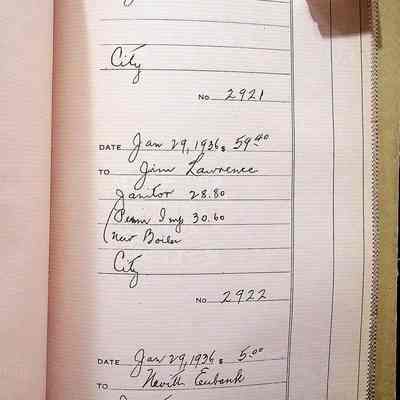 City
No 2921
DATE Jan 29, 1936 $ 59.40
TO Jim Lawrence
Janitor 28.80
(Perm Imp 30.60
New Boiler
City
No 2922
DATE Jan 29, 1936 $ 5.00
TO Nevith Eubank